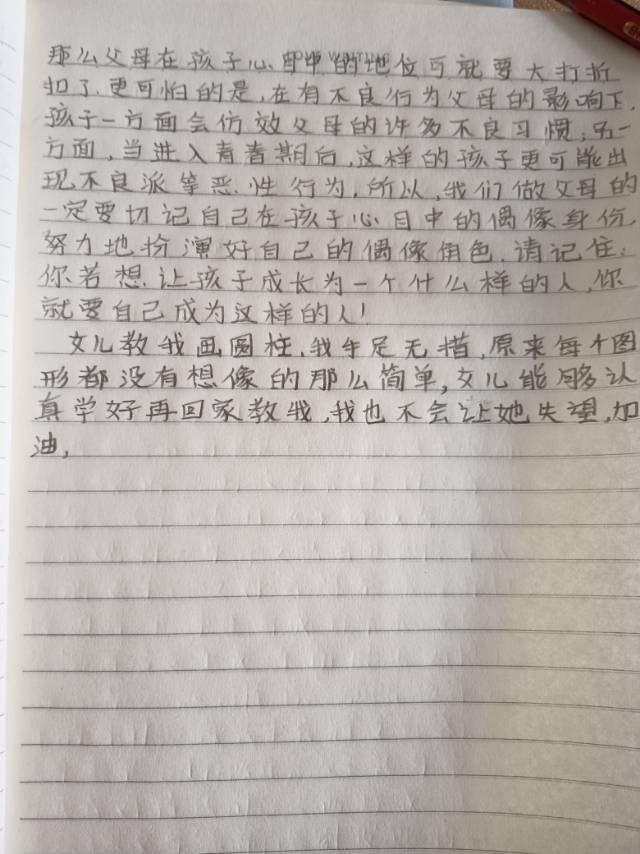 那么父母在孩子心中的地位可就要大打折
扣了。更可怕的是,在有不良行为父母的影响下,
孩子一方面会仿效父母的许多不良习惯;另一
方面,当进入青春期后,这样的孩子更可能出
现不良派等恶性行为,所以,我们做父母的
一定要切记自己在孩子心目中的偶像身份,
努力地扮演好自己的偶像角色,请记住:
你若想让孩子成长为一个什么样的人,你
就要自己成为这样的人!
女儿教我画圆柱,我手足无措,原来每个图
形都没有想像的那么简单,女儿能够认
真学好再回家教我,我也不会让她失望,加
油,